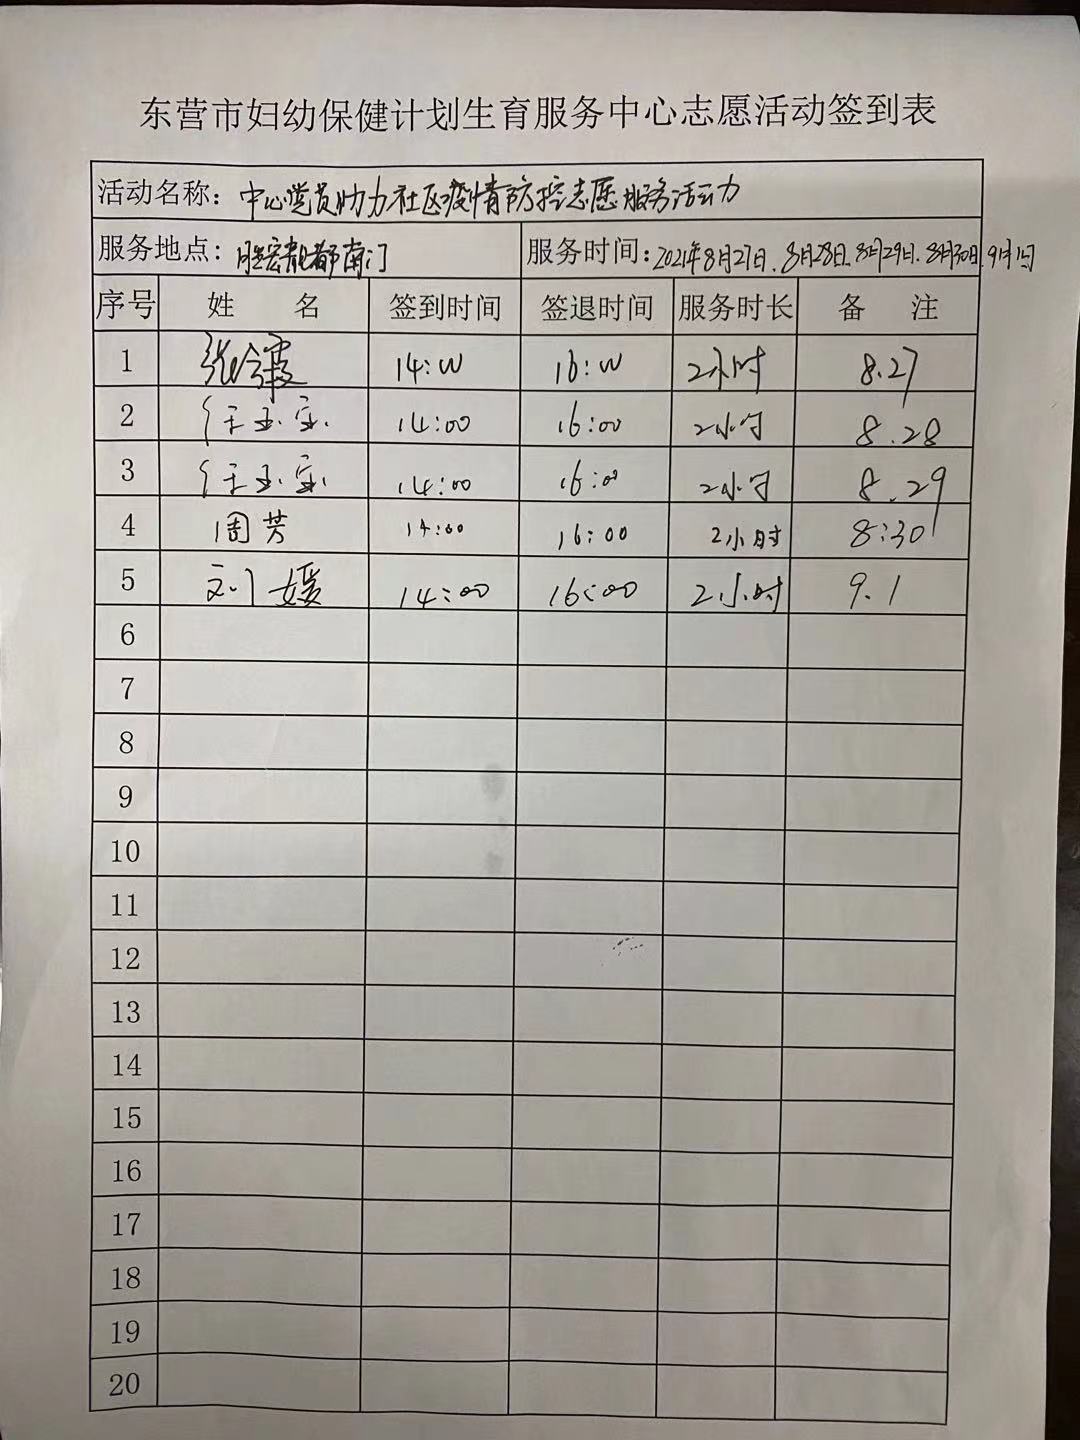 东营市妇幼保健计划生育服务中心志愿活动签到表
活动名称：中心党员助力社区疫情防控志愿服务活动
服务地点：胜宏靓都南门 服务时间：2021年8月27日.8月28日.8月29日.8月30日.9月1日
序号 姓 名 签到时间 签退时间 服务时长 备 注
1 张 霞 14:00 16:00 2小时 8.27
2 任玉宝 14:00 16:00 2小时 8.28
3 任玉宝 14:00 16:00 2小时 8.29
4 周芳 14:00 16:00 2小时 8:30
5 刘媛 14:00 16:00 2小时 9.1
6
7
8
9
10
11
12
13
14
15
16
17
18
19
20